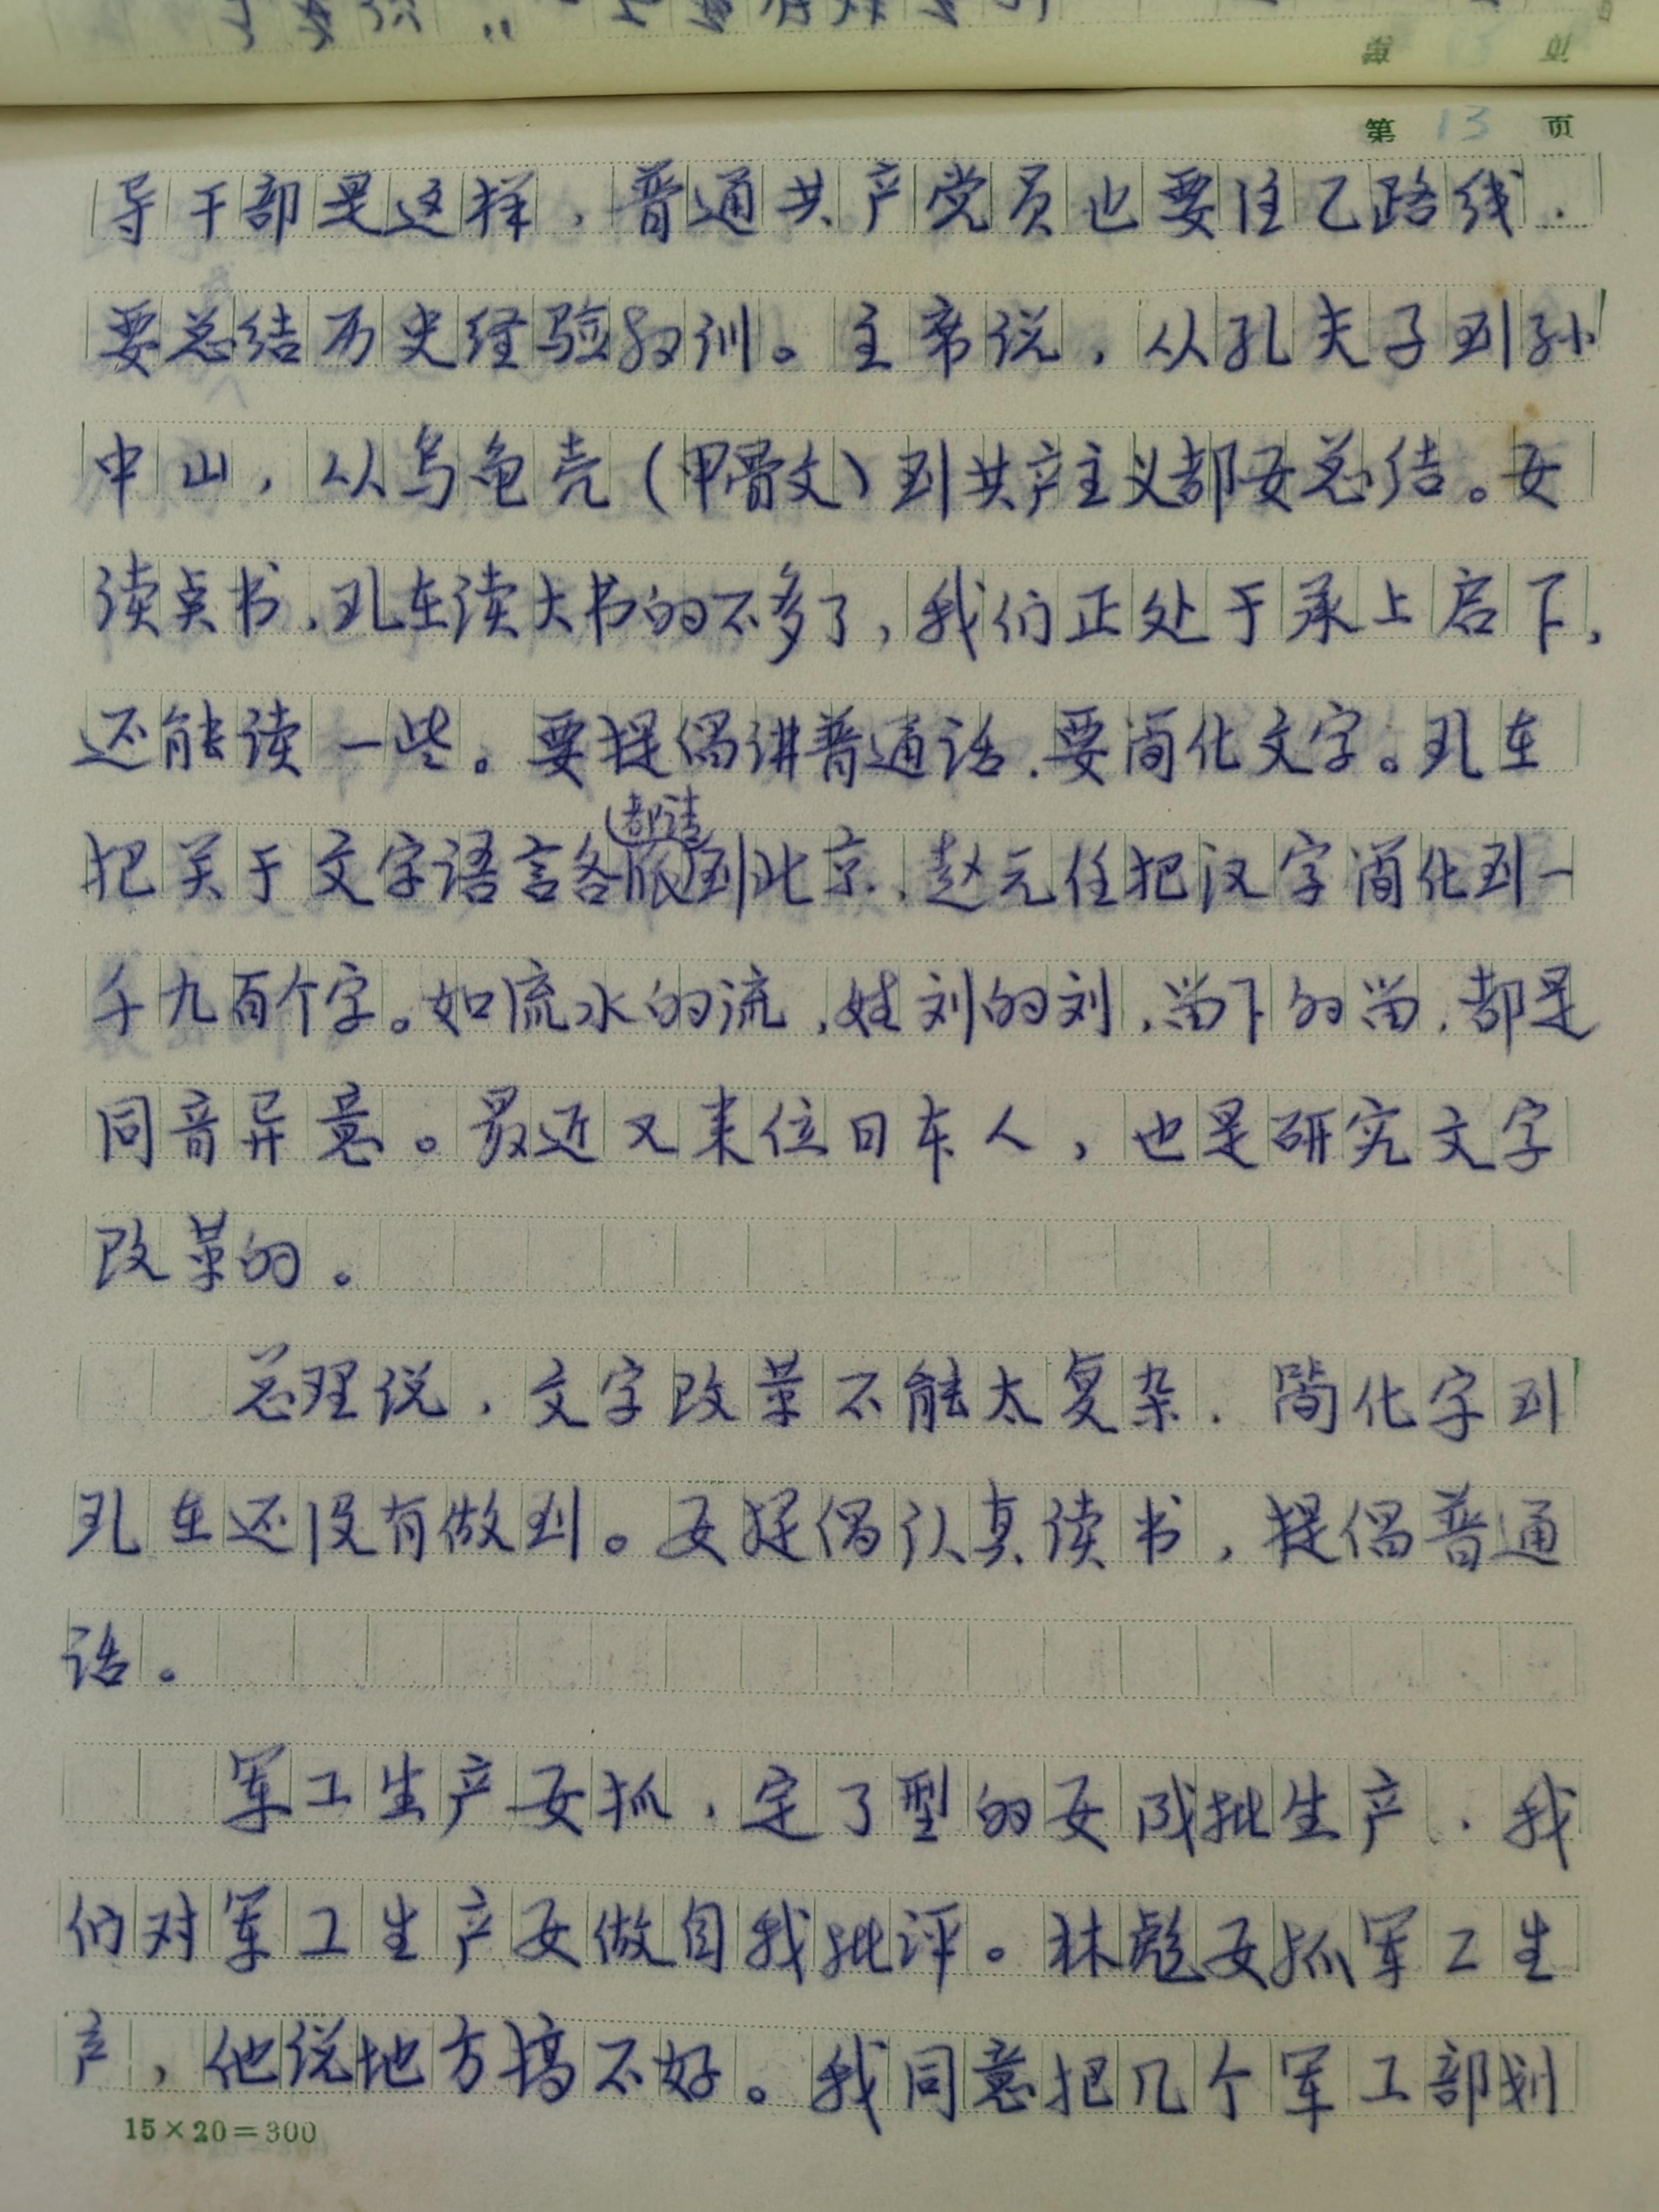 第 13 页
导干部是这样，普通共产党员也要注乙路线．
要总结历史经验教训。主席说，从孔夫子到孙
中山，从乌龟壳（甲骨文）到共产主义都要总结。要
读点书，现在读大书的不多了，我们正处于承上启下，
还能读一些。要提倡讲普通话．要简化文字。现在
把关于文字语言各派都请到北京，赵元任把汉字简化到一
千九百个字。如流水的流，姓刘的刘，留下的留，都是
同音异意。最近又来位日本人，也是研究文字
改革的。
总理说，文字改革不能太复杂．简化字到
现在还没有做到。要提倡认真读书，提倡普通
话。
军工生产要抓，定了型的要成批生产．我
们对军工生产要做自我批评。林彪要抓军工生
产，他说地方搞不好。我同意把几个军工部划
15×20＝300